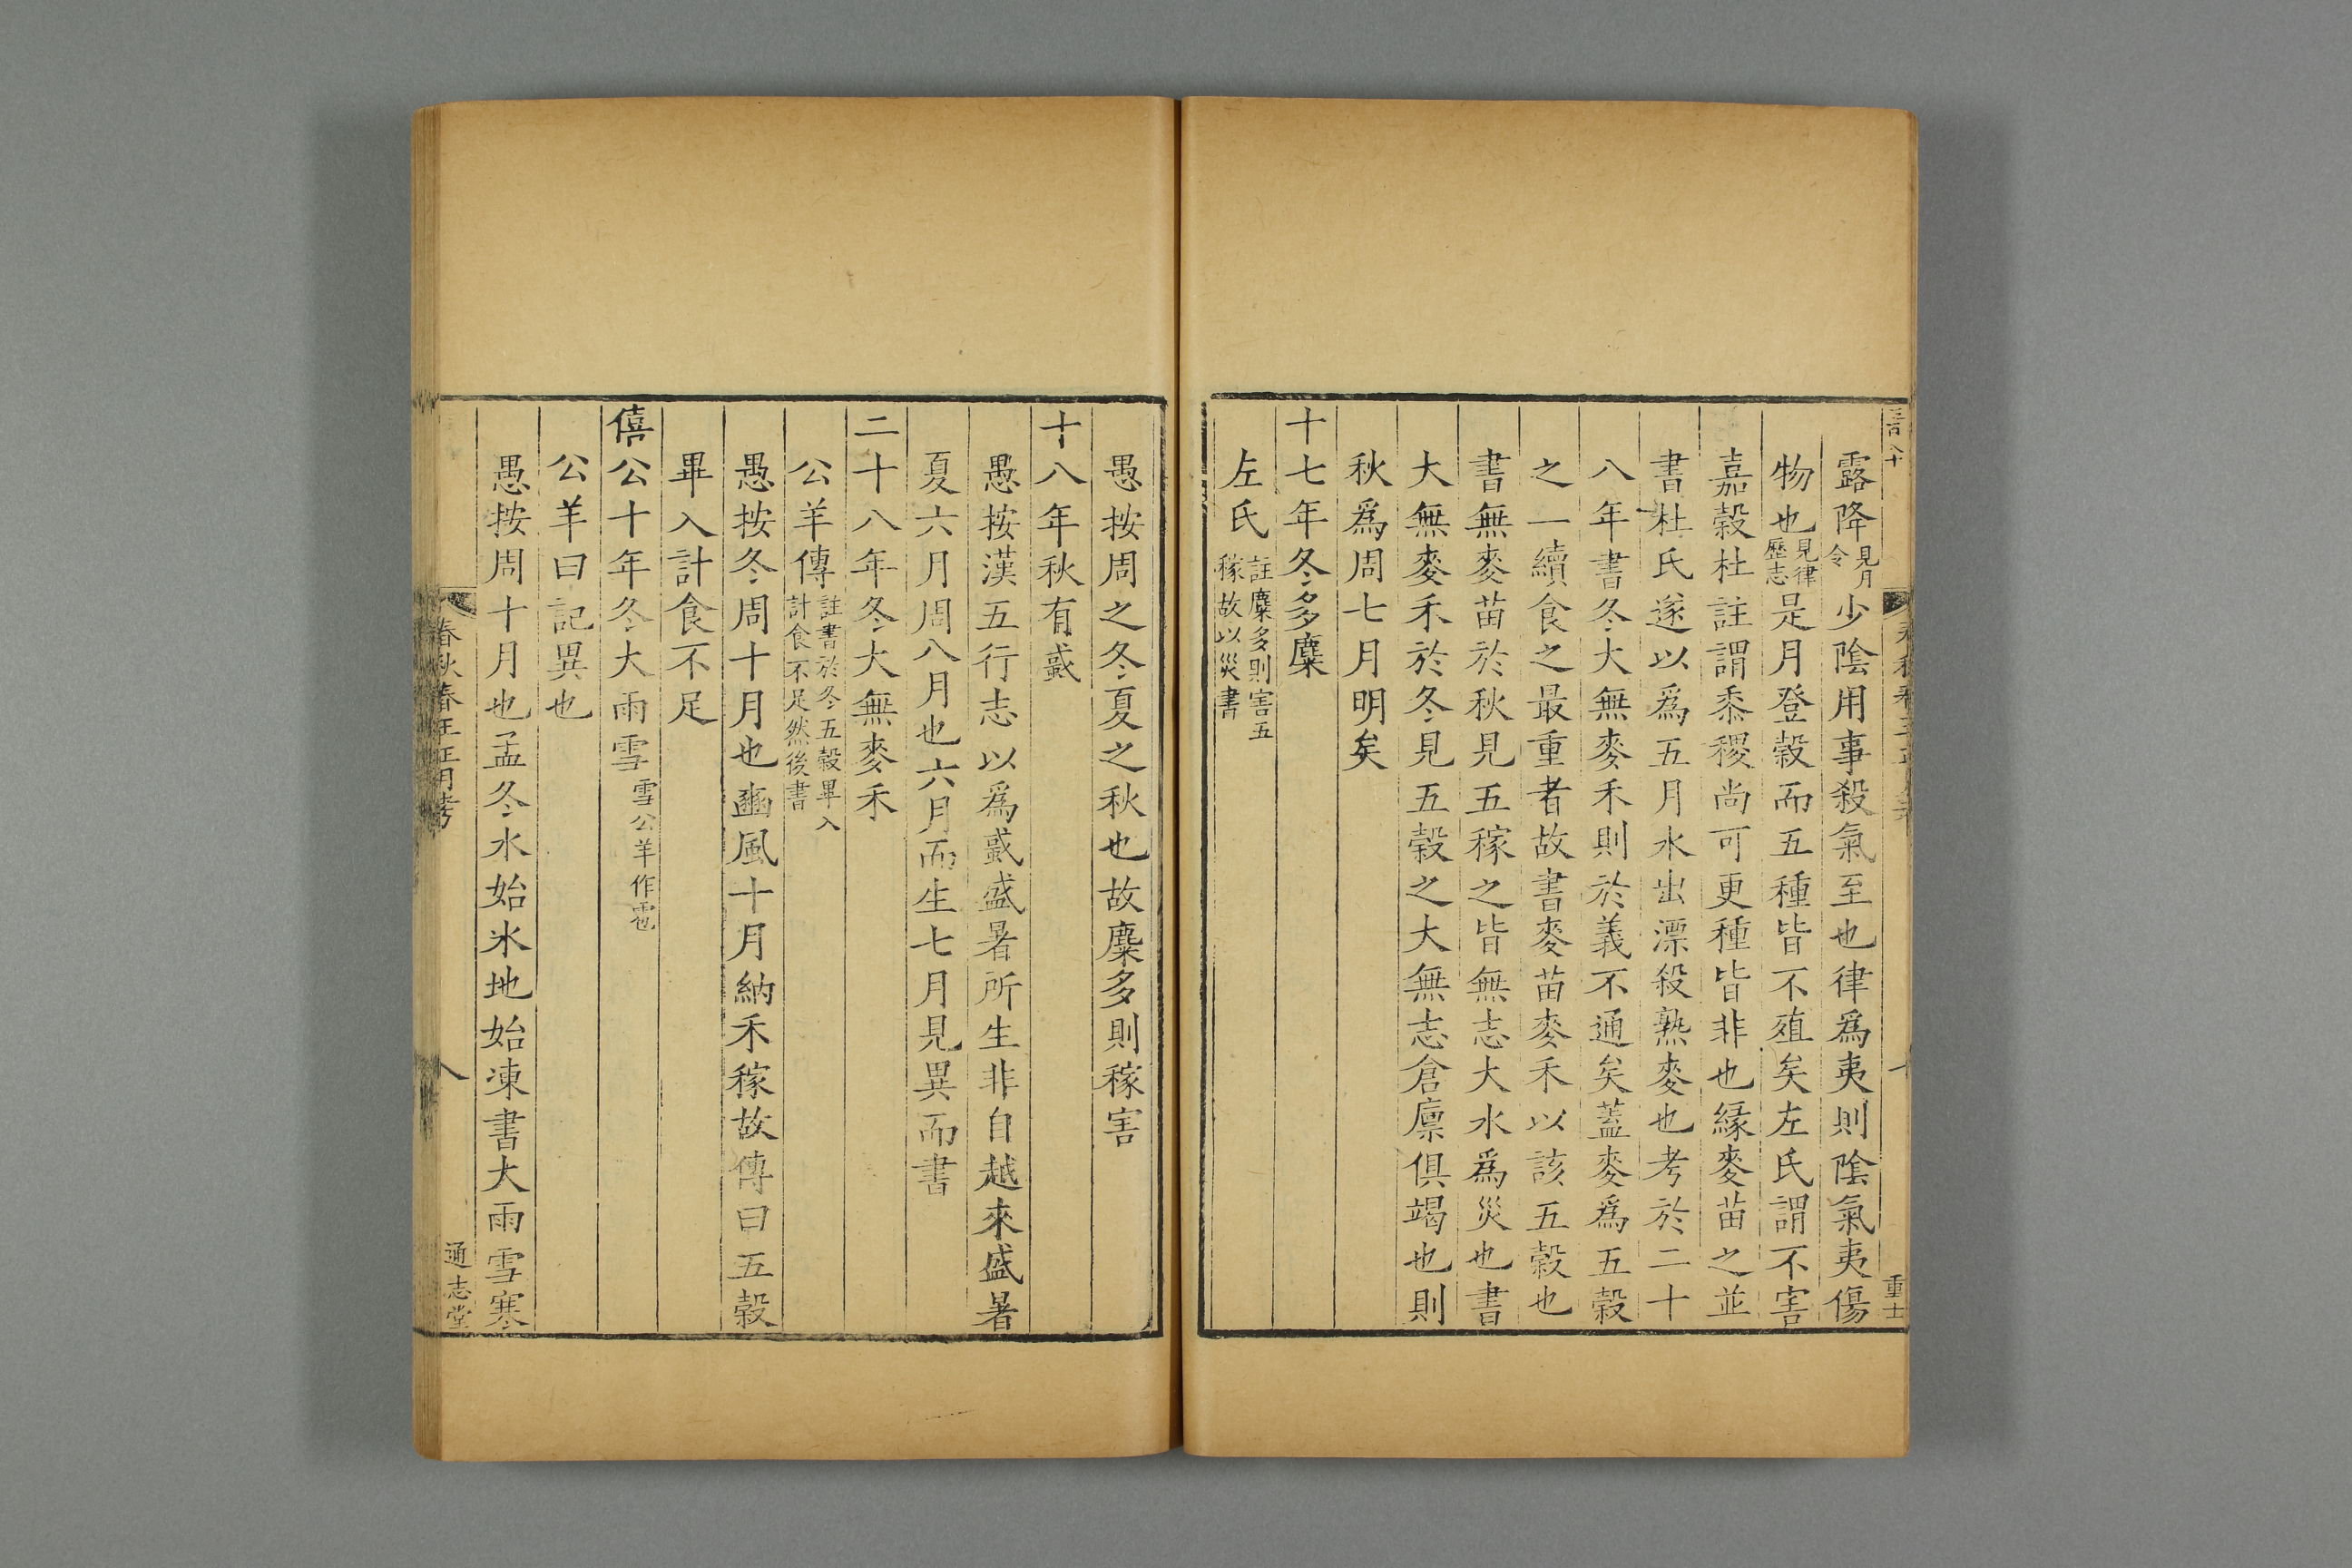 露降見月令少陰用事殺氣至也律爲夷則陰氣夷傷
物也見律歷志是月登榖而五種皆不殖矣左氏謂不害
嘉榖杜註謂黍稷尚可更種皆非也緣麥苗之並
書杜氏遂以爲五月水出漂殺熟麥也考於二十
八年書冬大無麥禾則於義不通矣蓋麥爲五榖
之一續食之最重者故書麥苗麥禾以該五榖也
書無麥苗於秋見五稼之皆無志大水爲災也書
大無麥禾於冬見五榖之大無志倉廪俱竭也則
秋爲周七月明矣
十七年冬多麋
左氏註麋多則害五稼故以災書
愚按周之冬夏之秋也故麋多則稼害
十八年秋有蜮
愚按漢五行志以爲蜮盛暑所生非自越來盛暑
夏六月周八月也六月而生七月見異而書
二十八年冬大無麥禾
公羊傳註書於冬五榖畢入計食不足然後書
愚按冬周十月也豳風十月納禾稼故傳曰五榖
畢入計食不足
僖公十年冬大雨雪雪公羊作雹
公羊曰記異也
愚按周十月也孟冬水始氷地始凍書大雨雪寒
春秋春王正月考
八
通志堂